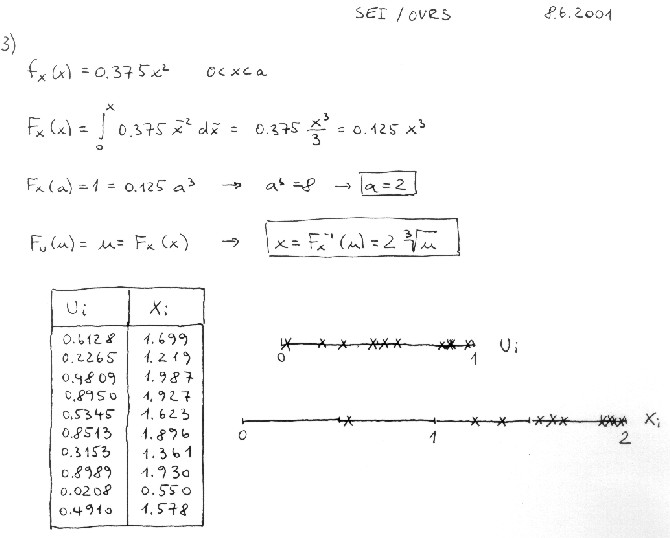 SEI / OVRS 8.6.2001
3)
fx(x) = 0.375x² 0<x<a
Fx(x) = ∫₀ˣ 0.375 x̃² dx̃ = 0.375 x³/3 = 0.125 x³
Fx(a) = 1 = 0.125 a³ → a³ = 8 → a = 2
Fu(u) = u = Fx(x) → x = Fx⁻¹(u) = 2 ∛u
Ui Xi
0.6128 1.699
0.2265 1.219
0.9809 1.987
0.8950 1.927
0.5345 1.623
0.8513 1.896
0.3153 1.361
0.8989 1.930
0.0208 0.550
0.4910 1.578
0 1 Ui
0 1 2 Xi